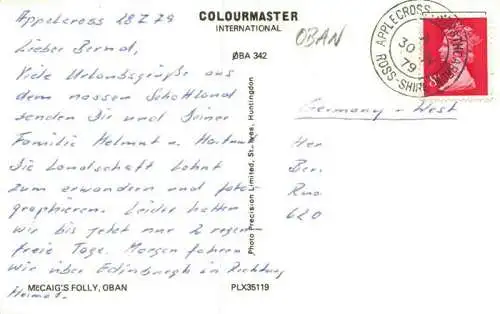 Applecross 28 7 79
Lieber Bernd,
Viele Urlaubsgrüße aus
dem nassen Schottland
senden Dir und Deiner
Familie Helmut u. Hartmut
Die Landschaft lohnt
zum erwandern und foto-
graphieren. Leider hatten
wir bis jetzt nur 2 regen-
freie Tage. Morgen fahren
wir über Edinburgh in Richtung
Heimat.
McCAIG'S FOLLY, OBAN
COLOURMASTER
INTERNATIONAL
ØBA 342
Photo Precision Limited, St. Ives, Huntingdon
PLX35119
OBAN
APPLECROSS
30
79
ROSS-SHIRE
Germany - West
Her
Ber
620